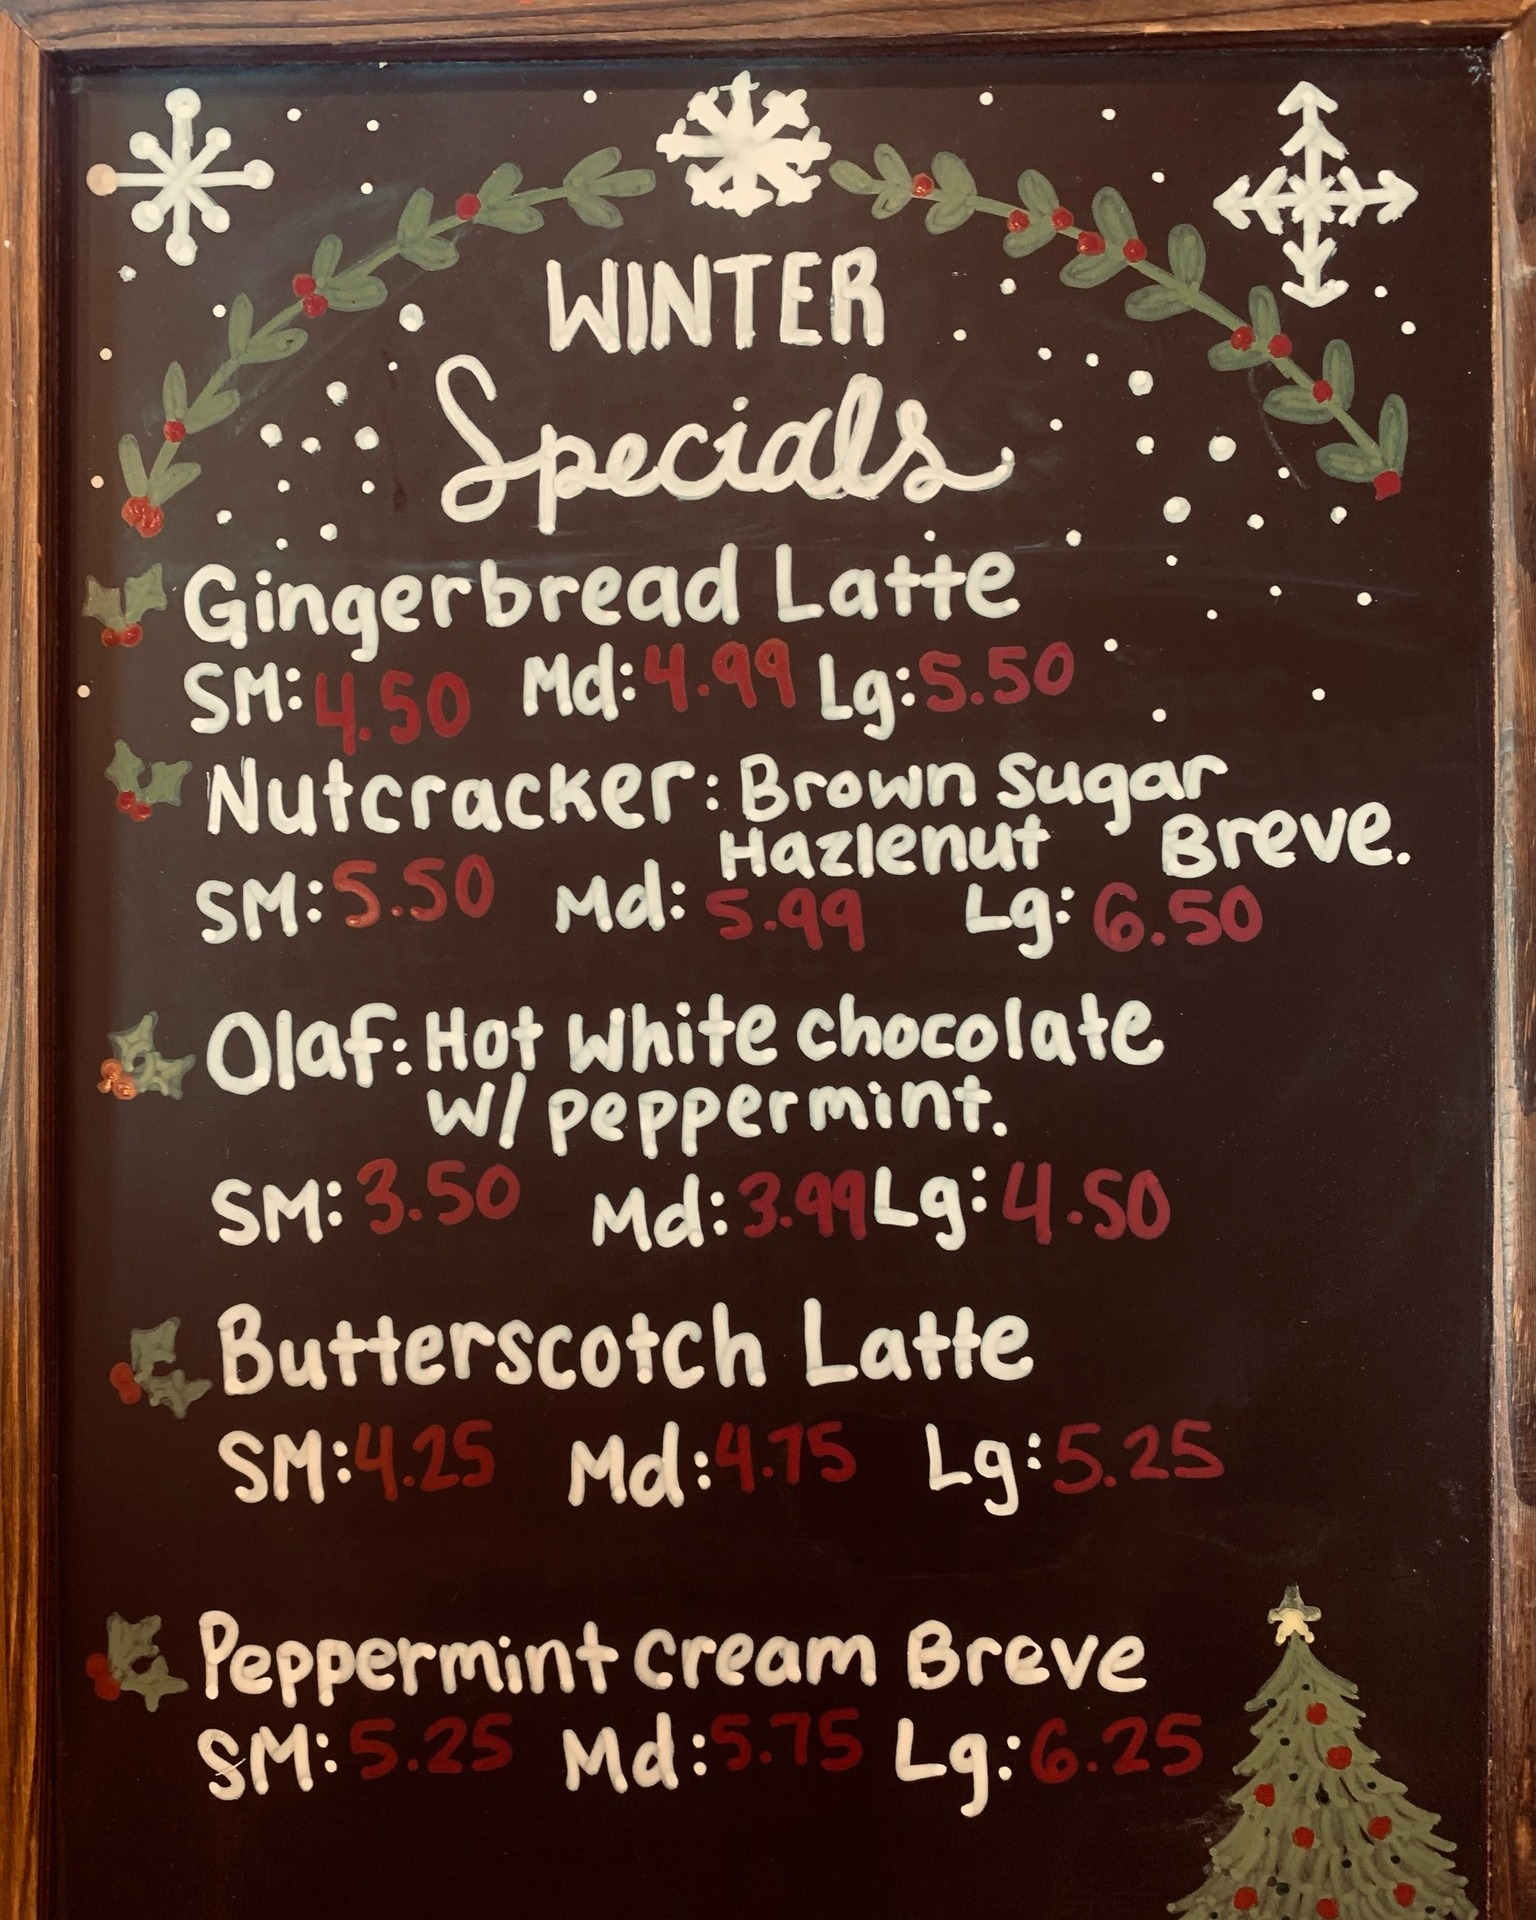 WINTER
Specials
Gingerbread Latte
SM: 4.50 Md: 4.99 Lg: 5.50
Nutcracker: Brown Sugar
Hazlenut Breve.
SM: 5.50 Md: 5.99 Lg: 6.50
Olaf: Hot White chocolate
w/ peppermint.
SM: 3.50 Md: 3.99 Lg: 4.50
Butterscotch Latte
SM: 4.25 Md: 4.75 Lg: 5.25
Peppermint Cream Breve
SM: 5.25 Md: 5.75 Lg: 6.25